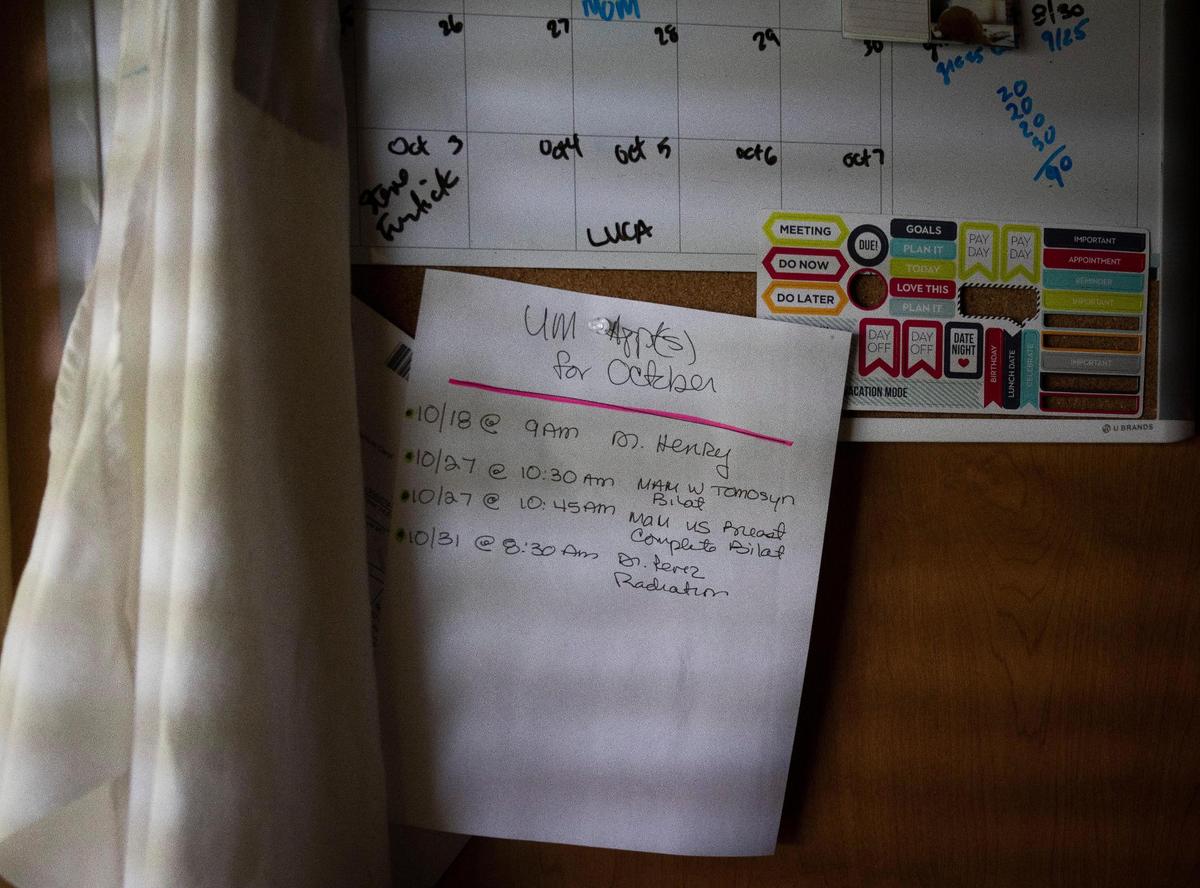 MOM
26 27 28 29 30
8/30
9/25
20
20
20
30
/90
Oct 3 Oct 4 Oct 5 Oct 6 Oct 7
LUCA
MEETING
DO NOW
DO LATER
DUE!
GOALS
PLAN IT
TODAY
LOVE THIS
PLAN IT
PAY DAY
PAY DAY
IMPORTANT
APPOINTMENT
REMINDER
IMPORTANT
IMPORTANT
DAY OFF
DAY OFF
DATE NIGHT
BIRTHDAY
LUNCH DATE
CELEBRATE
VACATION MODE
U BRANDS
UM Appt(s)
for October
10/18 @ 9AM Dr. Henry
10/27 @ 10:30 AM MAM W TOMOSYN
Bilat
10/27 @ 10:45AM MAM US Breast
Complete Bilat
10/31 @ 8:30 Am Dr. Perez
Radiation